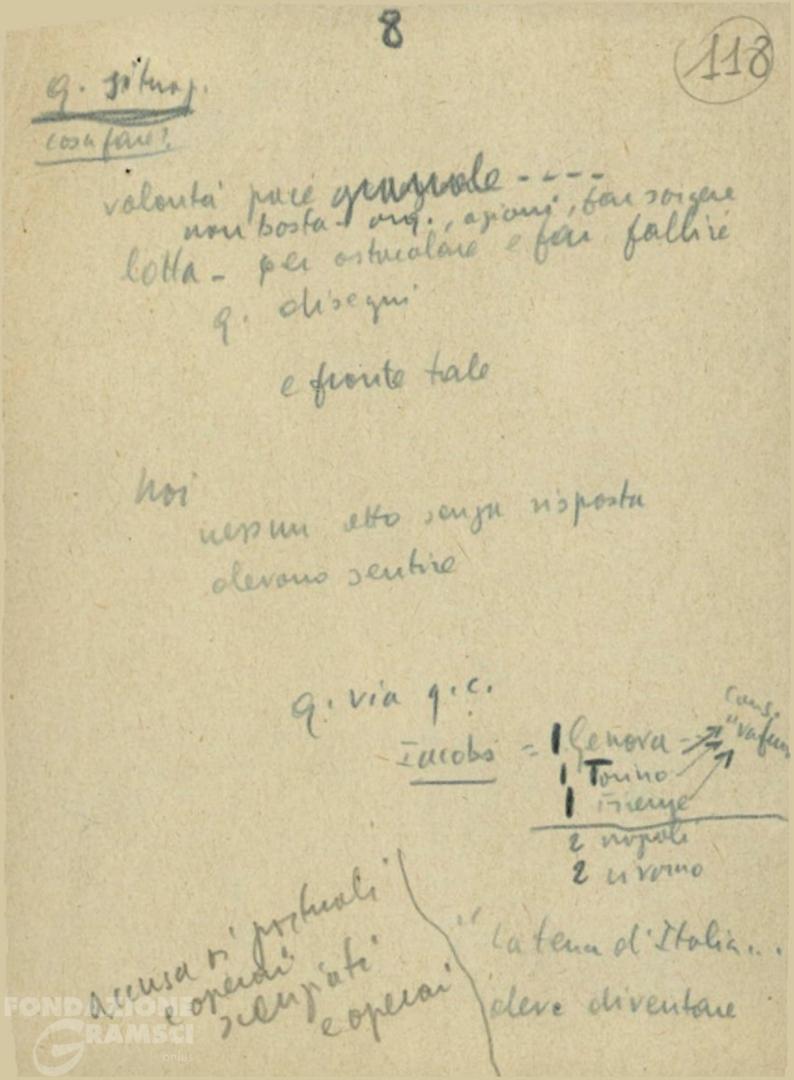 8
118
q. situaz.
cosa fare?
volontà pace ----
non basta - org., azioni, far sorgere
lotta - per ostacolare e far fallire
q. disegni
e fronte tale
Noi
nessun atto senza risposta
devono sentire
q. via q. c.
Iacobs = 1 Genova
1 Torino
1 Firenze
2 napoli
2 Livorno
Accusa ai portuali
e operai
scienziati
e operai
"La terra d'Italia...
deve diventare
FONDAZIONE
GRAMSCI
onlus